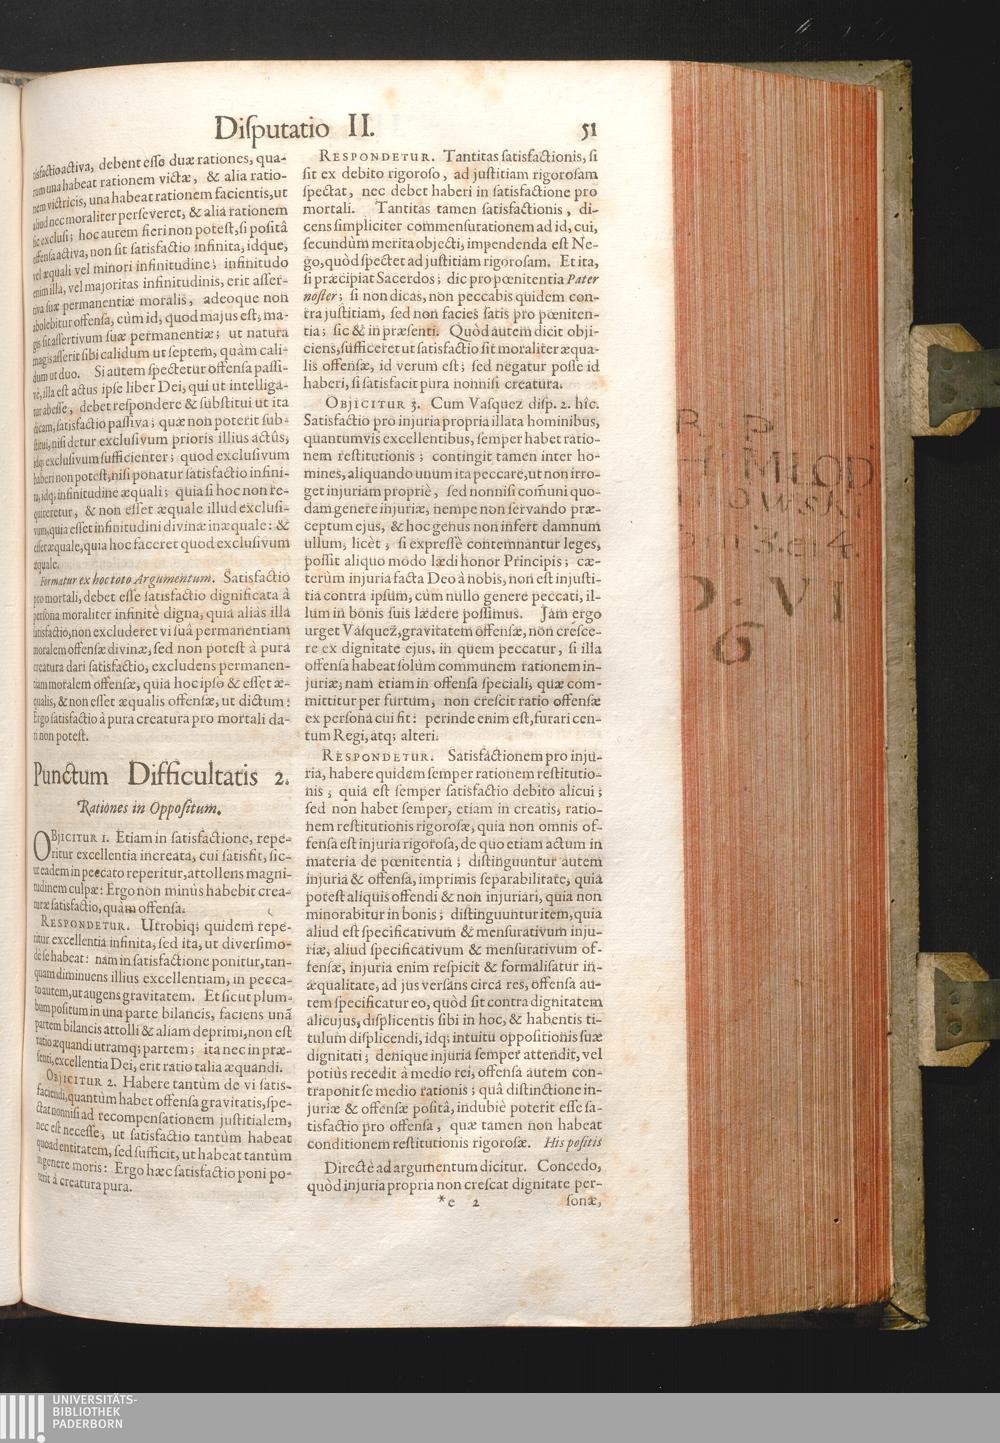 Disputatio II. 51
tisfactio activa, debent esse duæ rationes, qua-
rum una habeat rationem victæ, & alia ratio-
nem victricis, una habeat rationem facientis, ut
aliud nec moraliter perseveret, & alia rationem
sic exclusi; hoc autem fieri non potest, si positâ
offensa activa, non sit satisfactio infinita, idque,
vel æquali vel minori infinitudine; infinitudo
enim illa, vel majoritas infinitudinis, erit asser-
tiva suæ permanentiæ moralis, adeoque non
abolebitur offensa, cùm id, quod majus est, ma-
gis sit assertivum suæ permanentiæ; ut natura
magis asserit sibi calidum ut septem, quàm cali-
dum ut duo. Si autem spectetur offensa passi-
vè, illa est actus ipse liber Dei, qui ut intelliga-
tur abesse, debet respondere & substitui ut ita
dicam, satisfactio passiva; quæ non poterit sub-
stitui, nisi detur exclusivum prioris illius actûs,
idq; exclusivum sufficienter; quod exclusivum
haberi non potest, nisi ponatur satisfactio infini-
ta, idq; infinitudine æquali; quia si hoc non re-
quireretur, & non esset æquale illud exclusi-
vum, quia esset infinitudini divinæ inæquale: &
esset æquale, quia hoc faceret quod exclusivum
æquale.
Formatur ex hoc toto Argumentum. Satisfactio
pro mortali, debet esse satisfactio dignificata à
persona moraliter infinitè digna, quia aliàs illa
satisfactio, non excluderet vi suâ permanentiam
moralem offensæ divinæ, sed non potest à pura
creatura dari satisfactio, excludens permanen-
tiam moralem offensæ, quia hoc ipso & esset æ-
qualis, & non esset æqualis offensæ, ut dictum:
Ergo satisfactio à pura creatura pro mortali da-
ri non potest.
Punctum Difficultatis 2.
Rationes in Oppositum.
OBJICITUR 1. Etiam in satisfactione, repe-
ritur excellentia increata, cui satisfit, sic-
ut eadem in peccato reperitur, attollens magni-
tudinem culpæ: Ergo non minùs habebit crea-
turæ satisfactio, quàm offensa.
RESPONDETUR. Utrobiq; quidem repe-
ritur excellentia infinita, sed ita, ut diversimo-
dè se habeat: nam in satisfactione ponitur, tan-
quam diminuens illius excellentiam, in pecca-
to autem, ut augens gravitatem. Et sicut plum-
bum positum in una parte bilancis, faciens unã
partem bilancis attolli & aliam deprimi, non est
ratio æquandi utramq; partem; ita nec in præ-
senti, excellentia Dei, erit ratio talia æquandi.
OBJICITUR 2. Habere tantùm de vi satis-
faciendi, quantùm habet offensa gravitatis, spe-
ctat nonnisi ad recompensationem justitialem,
nec est necesse, ut satisfactio tantùm habeat
quoad entitatem, sed sufficit, ut habeat tantùm
in genere moris: Ergo hæc satisfactio poni po-
terit à creatura pura.
RESPONDETUR. Tantitas satisfactionis, si
sit ex debito rigoroso, ad justitiam rigorosam
spectat, nec debet haberi in satisfactione pro
mortali. Tantitas tamen satisfactionis, di-
cens simpliciter commensurationem ad id, cui,
secundùm merita objecti, impendenda est Ne-
go, quòd spectet ad justitiam rigorosam. Et ita,
si præcipiat Sacerdos; dic pro pœnitentia Pater
noster; si non dicas, non peccabis quidem con-
tra justitiam, sed non facies satis pro pœniten-
tia; sic & in præsenti. Quòd autem dicit obji-
ciens, sufficeret ut satisfactio sit moraliter æqua-
lis offensæ, id verum est; sed negatur posse id
haberi, si satisfacit pura nonnisi creatura.
OBJICITUR 3. Cum Vasquez disp. 2. hîc.
Satisfactio pro injuria propria illata hominibus,
quantumvis excellentibus, semper habet ratio-
nem restitutionis; contingit tamen inter ho-
mines, aliquando unum ita peccare, ut non irro-
get injuriam propriè, sed nonnisi com̃uni quo-
dam genere injuriæ, nempe non servando præ-
ceptum ejus, & hoc genus non infert damnum
ullum, licèt, si expressè contemnantur leges,
possit aliquo modo lædi honor Principis; cæ-
terùm injuria facta Deo à nobis, non est injusti-
tia contra ipsum, cùm nullo genere peccati, il-
lum in bonis suis lædere possimus. Jam ergo
urget Vasquez, gravitatem offensæ, non cresce-
re ex dignitate ejus, in quem peccatur, si illa
offensa habeat solùm communem rationem in-
juriæ; nam etiam in offensa speciali, quæ com-
mittitur per furtum, non crescit ratio offensæ
ex persona cui fit: perinde enim est, furari cen-
tum Regi, atq; alteri.
RESPONDETUR. Satisfactionem pro inju-
ria, habere quidem semper rationem restitutio-
nis, quia est semper satisfactio debito alicui;
sed non habet semper, etiam in creatis, ratio-
nem restitutionis rigorosæ, quia non omnis of-
fensa est injuria rigorosa, de quo etiam actum in
materia de pœnitentia; distinguuntur autem
injuria & offensa, imprimis separabilitate, quia
potest aliquis offendi & non injuriari, quia non
minorabitur in bonis; distinguuntur item, quia
aliud est specificativum & mensurativum inju-
riæ, aliud specificativum & mensurativum of-
fensæ, injuria enim respicit & formalisatur in-
æqualitate, ad jus versans circa res, offensa au-
tem specificatur eo, quòd sit contra dignitatem
alicujus, displicentis sibi in hoc, & habentis ti-
tulum displicendi, idq; intuitu oppositionis suæ
dignitati; denique injuria semper attendit, vel
potiùs recedit à medio rei, offensa autem con-
traponit se medio rationis; quâ distinctione in-
juriæ & offensæ positâ, indubiè poterit esse sa-
tisfactio pro offensa, quæ tamen non habeat
conditionem restitutionis rigorosæ. His positis
Directè ad argumentum dicitur. Concedo,
quòd injuria propria non crescat dignitate per-
*e 2 sonæ,
R. P.
MłOD
3. e. 4.
VI
6
UNIVERSITÄTS-
BIBLIOTHEK
PADERBORN